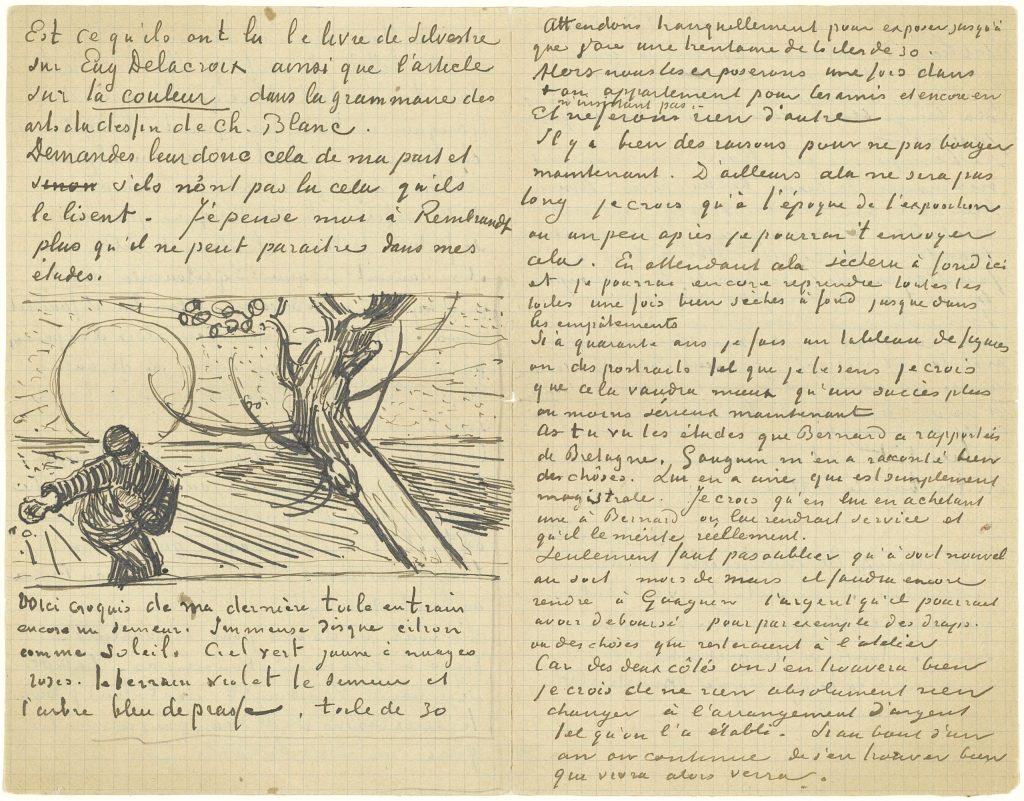 Est ce qu'ils ont lu le livre de Silvestre
sur Eug Delacroix ainsi que l'article
sur la couleur dans la grammaire des
arts du dessin de Ch. Blanc.
Demandes leur donc cela de ma part et
sinon s'ils n'ont pas lu cela qu'ils
le lisent. J'épense moi à Rembrandt
plus qu'il ne peut paraitre dans mes
études.
Voici croquis de ma dernière toile en train
encore un semeur. Immense disque citron
comme soleil. Ciel vert jaune à nuages
roses. le terrain violet le semeur et
l'arbre bleu de prusse. toile de 30
Attendons tranquillement pour exposer jusqu'à
que j'aie une trentaine de toiles de 30.
Alors nous les exposerons une fois dans
ton appartement pour les amis et encore en
n'insistant pas.
Et ne ferons rien d'autre
Il y a bien des raisons pour ne pas bouger
maintenant. D'ailleurs cela ne sera pas
long je crois qu'à l'époque de l'exposition
ou un peu après je pourrai t'envoyer
cela. En attendant cela sèchera à fond ici
et je pourrai encore reprendre toutes les
toiles une fois bien sèches à fond jusque dans
les empâtements
Si à quarante ans je fais un tableau de figures
ou des portraits tel que je le sens je crois
que cela vaudra mieux qu'un succès plus
ou moins sérieux maintenant
As tu vu les études que Bernard a rapportées
de Bretagne. Gauguin m'en a raconté bien
des chôses. Lui en a une qui est simplement
magistrale. Je crois qu'en lui en achetant
une à Bernard on lui rendrait service et
qu'il le mérite réellement.
Seulement faut pas oublier qu'à soit nouvel
an soit mois de mars il faudra encore
rendre à Gauguin l'argent qu'il pourrait
avoir deboursé pour par exemple des draps.
ou des chôses qui resteraient à l'atelier
Car des deux côtés on s'en trouvera bien
je crois de ne rien absolument rien
changer à l'arrangement d'argent
tel qu'on l'a établi. Si au bout d'un
an on continue de s'en trouver bien
qui vivra alors verra.